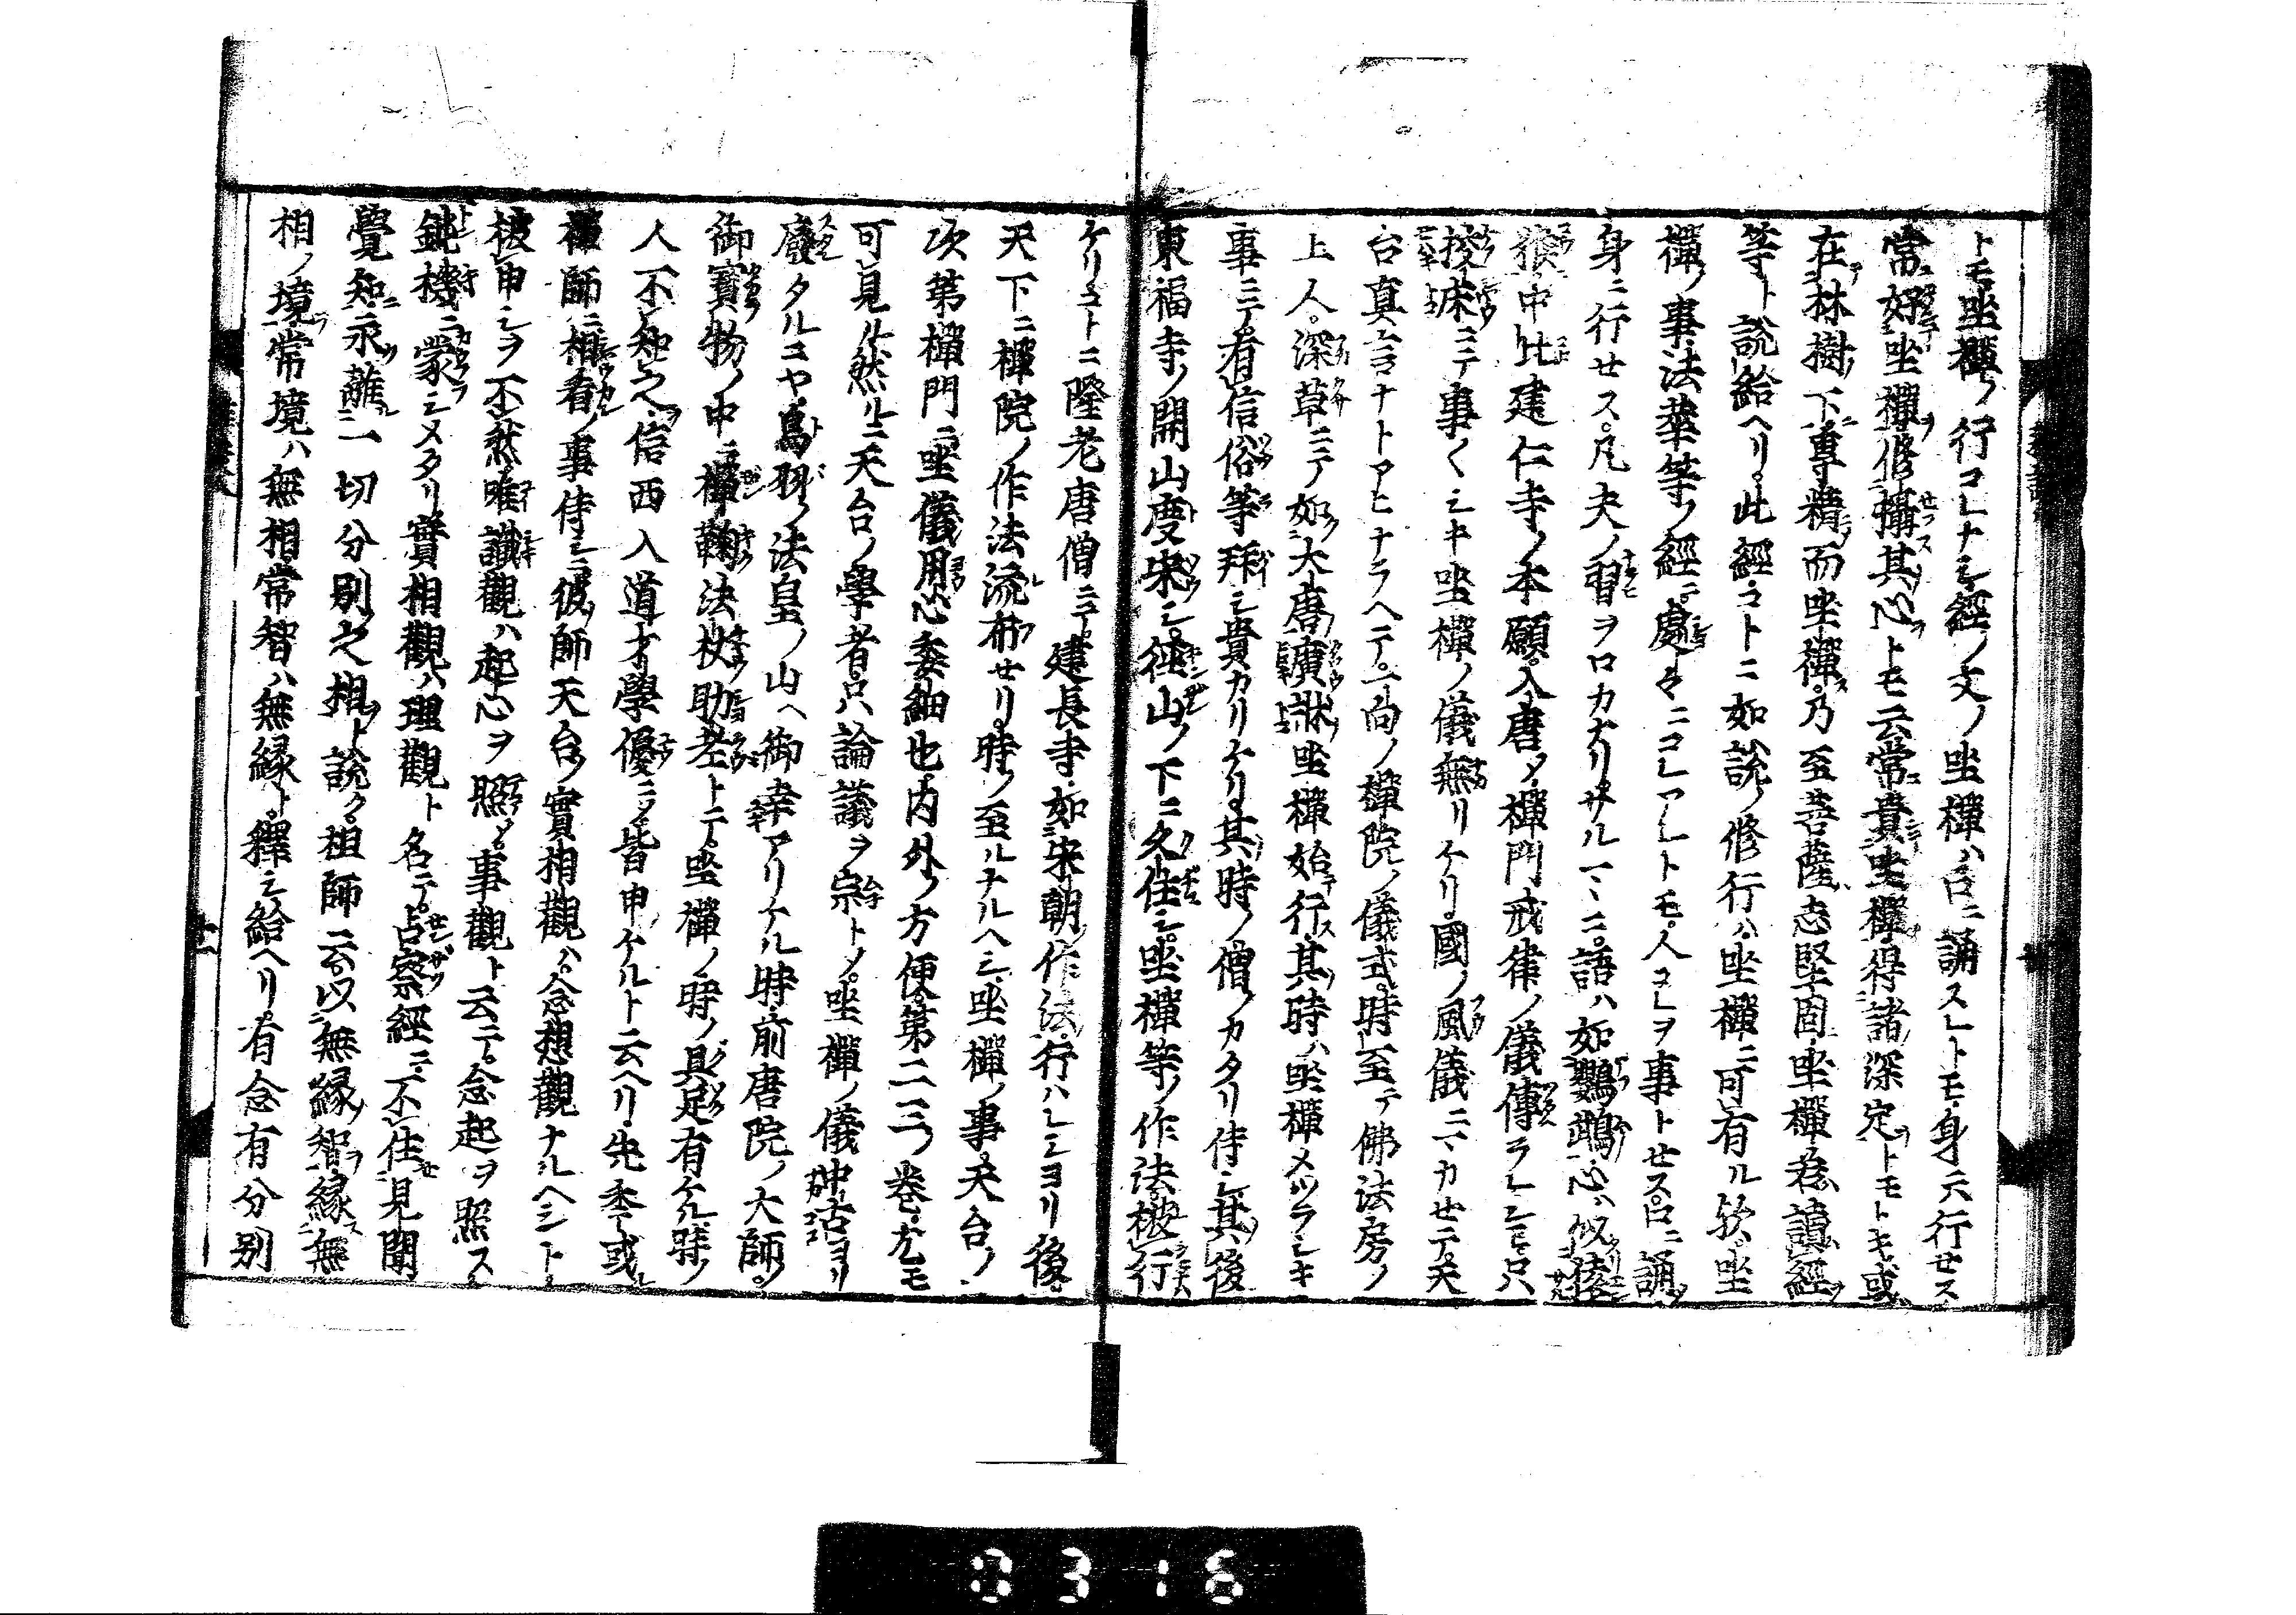 トモ坐禪ノ行コレナシ經ノ文ノ坐禪ハ口ニ誦スレトモ身六行セス
常好坐禪修攝其心トモ云常貴坐禪得諸深定トモトキ或
在林樹下專精而坐禪乃至菩薩志堅固坐禪若讀經
等ト説給ヘリ此經コトニ如説ノ修行ハ坐禪ニ可有ル欤坐
禪ノ事法華等ノ經ニ處々ニコレアレトモ人コレヲ事トセス口ニ誦
身ニ行セス凡夫ノ習ヲロカナリサルマヽニ語ハ如鸚鵡心ハ似猿
猴中比建仁寺ノ本願入唐メ禪門戒律ノ儀傳ラレシモ只
挍床ニテ事〱シキ坐禪ノ儀無リケリ國ノ風儀ニマカセテ天
台真言ナトアヒナラヘテ一向ノ禪院ノ儀式時至テ佛法房ノ
上人深草ニテ如大唐廣牀坐禪始行其時ハ坐禪メツラシキ
事ニテ有信俗等拜シ貴カリケリ其時ノ僧ノカタリ侍シ其後
東福寺ノ開山度宋シ徑山ノ下ニ久住シ坐禪等ノ作法被行
ケリコトニ隆老唐僧ニテ建長寺如宋朝作法行ハレシヨリ後
天下ニ禪院ノ作法流布セリ時ノ至ルナルヘシ坐禪ノ事天台ノ
次第禪門ニ坐儀用心委細也内外ノ方便第二三ノ卷尤モ
可見ル然ルニ天台ノ學者只論議ヲ宗トメ坐禪ノ儀中古ヨリ
廢タルコヤ鳥羽ノ法皇ノ山ヘ御幸アリケル時前唐院ノ大師ノ
御寶物ノ中ニ禪鞠法杖助老トテ坐禪ノ時ノ具足有ケル時ノ
人不知之信西入道才學優ニメ皆申ケルト云ヘリ先季或
禪師ニ相看ノ事侍シニ彼師天台ノ實相觀ハ念想觀ナルヘシト
被申シヲ不然唯識觀ハ起心ヲ照メ事觀ト云テ念起ヲ照ス
鈍機ニ蒙シメタリ實相觀ハ理觀ト名テ占察經ニ不住見聞
覺知永離一切分別之相ト説ク祖師云以無緣智緣無
相ノ境常境ハ無相常智ハ無縁ト釋シ給ヘリ有念有分別
0316